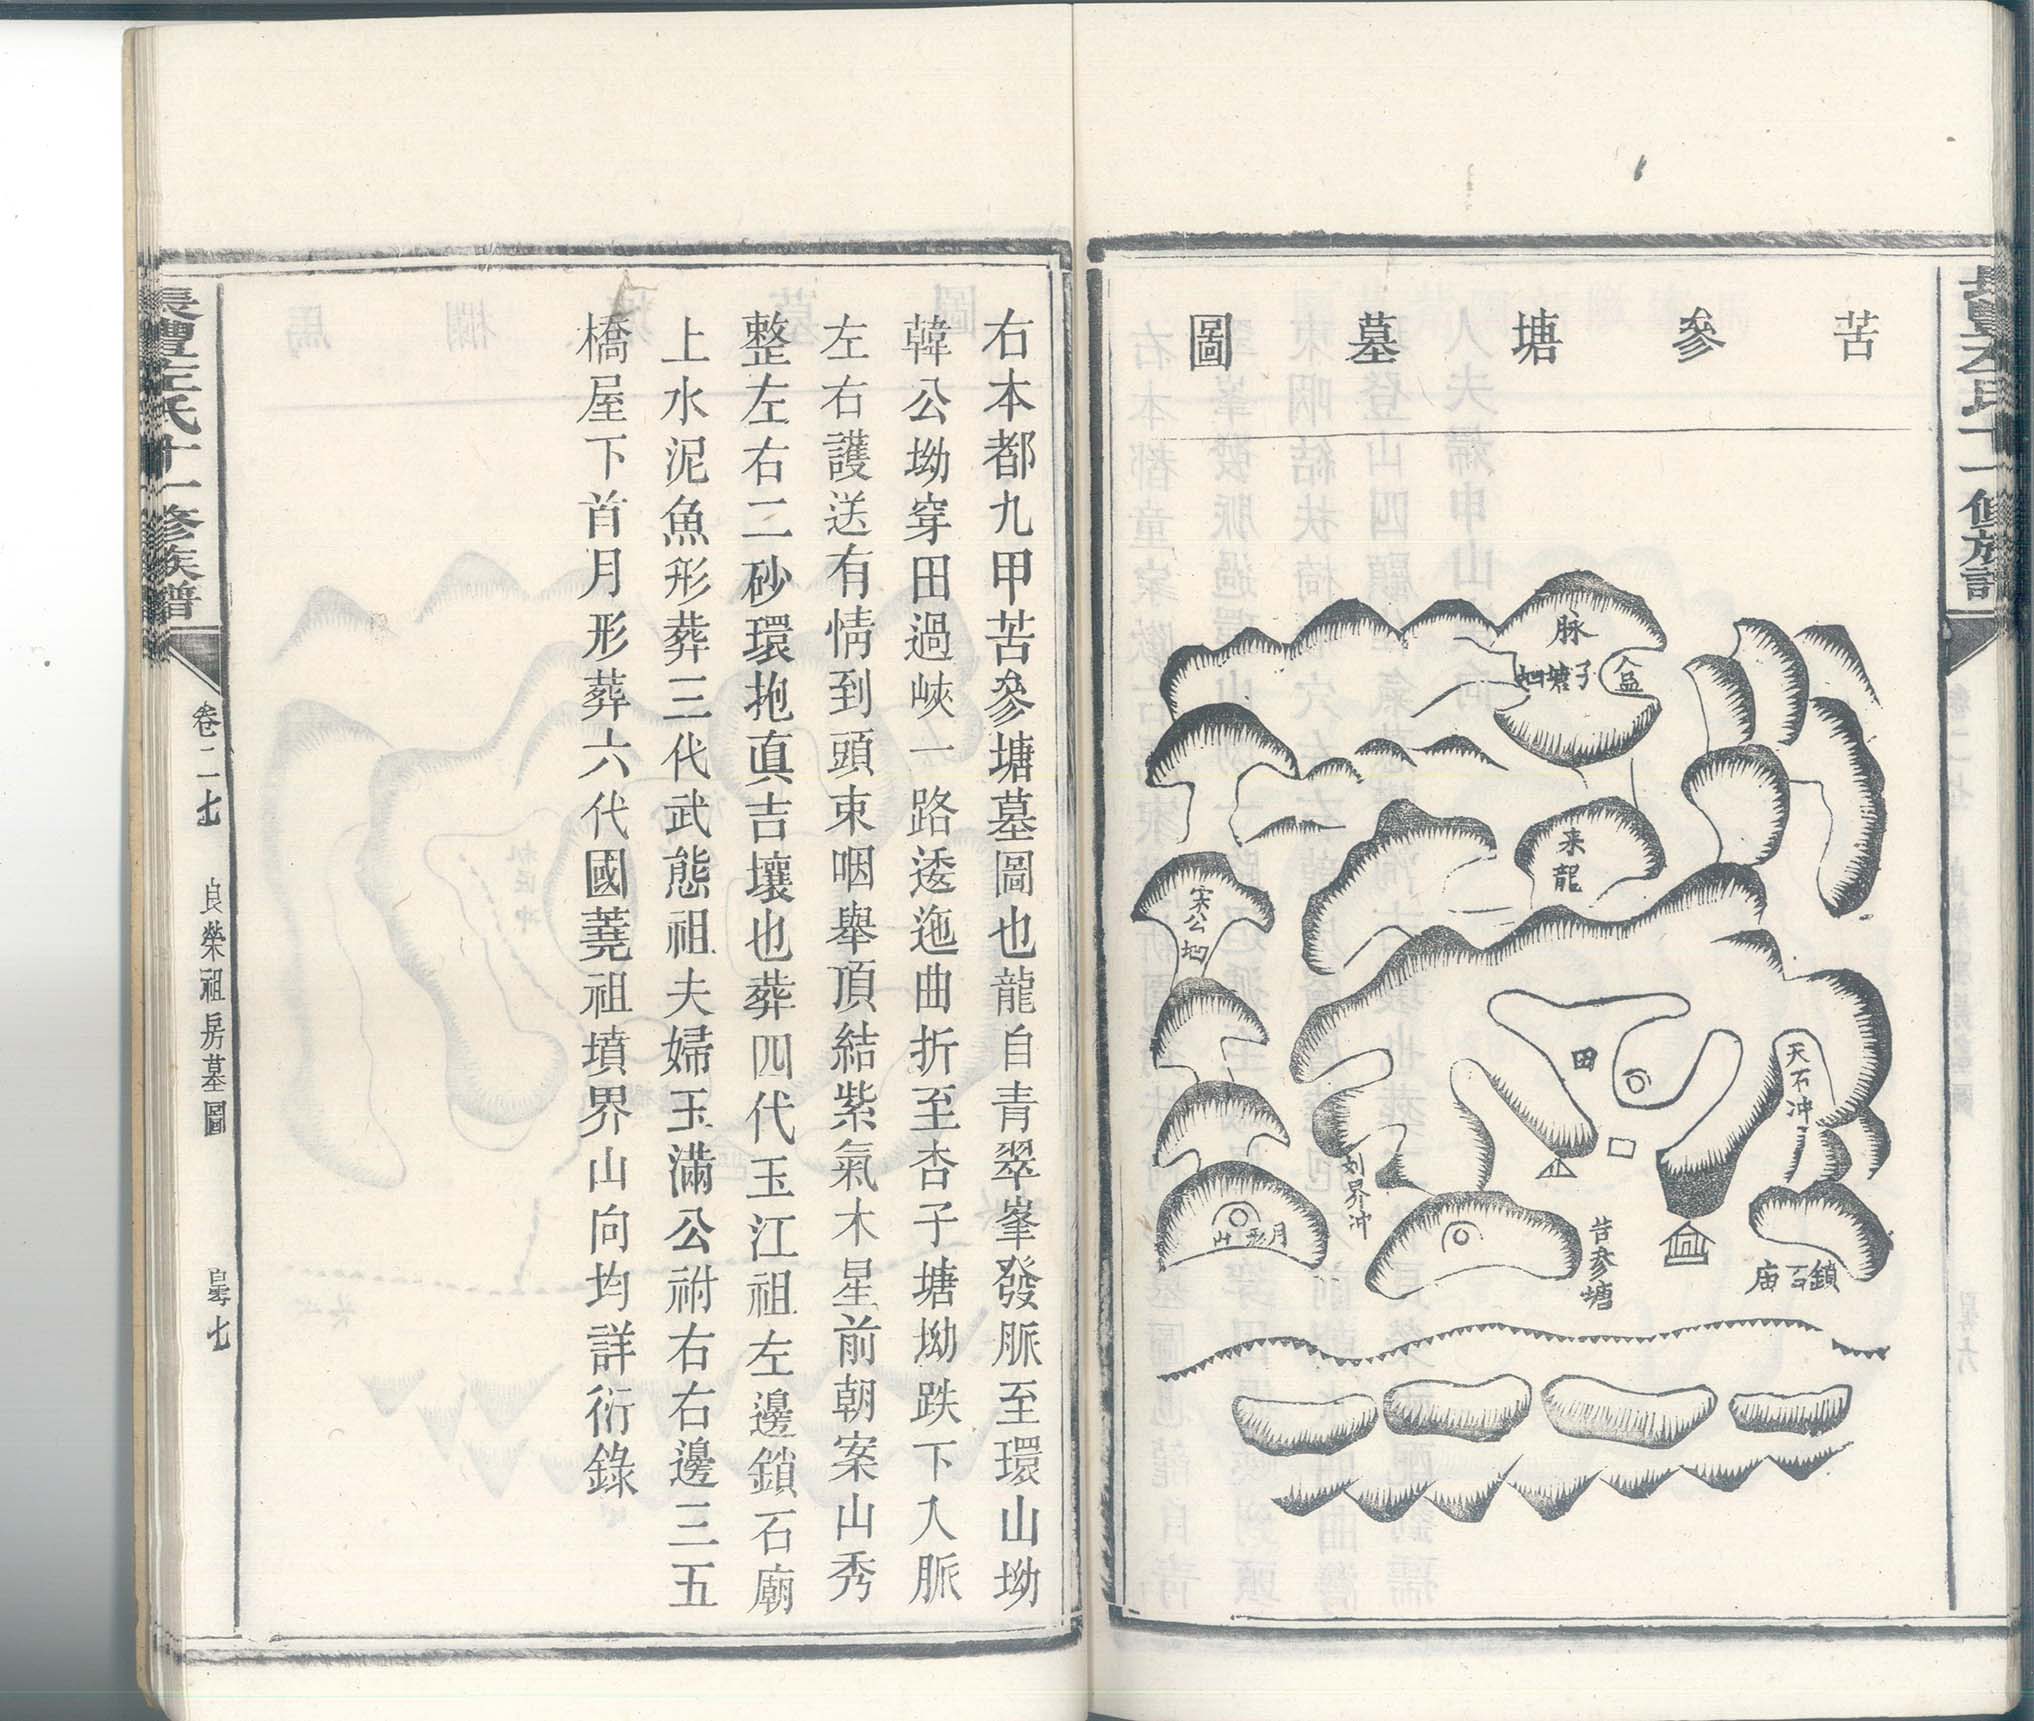 苦參塘墓圖
脉
杏子塘坳
来龍
宋公坳
田
天石冲
刘界冲
月形山
苦参塘
鎖石庙
右本都九甲苦參塘墓圖也龍自青翠峯發脈至環山坳
韓公坳穿田過峽一路逶迤曲折至杏子塘坳跌下入脈
左右護送有情到頭束咽舉頂結紫氣木星前朝案山秀
整左右二砂環抱真吉壤也葬四代玉江祖左邊鎖石廟
上水泥魚形葬三代武態祖夫婦玉滿公祔右右邊三五
橋屋下首月形葬六代國蕘祖墳界山向均詳衍錄
長豊左氏十一修族譜
卷二七
良榮祖房墓圖
七